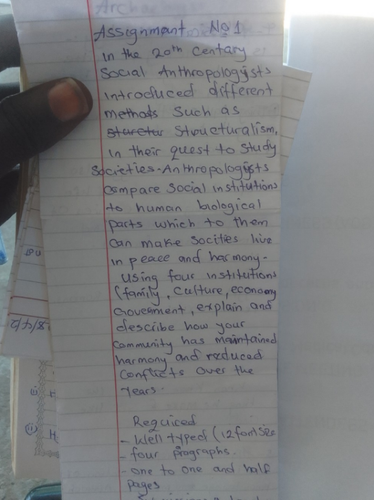 Assignment No 1
in the 20th Centary
Social Anthropologists
introduced different
methods Such as
Structuralism,
in their quest to Study
Societies. Anthropologists
Compare Social institutions
to human biological
parts which to them
Can make Socities live
in peace and harmony.
Using four institutions
(family, Culture, economy
Government, explain and
describe how your
Community has maintained
harmony and reduced
Conflicts over the
Years.
Required
- Well typed (12
- four
- one to one and half
pages